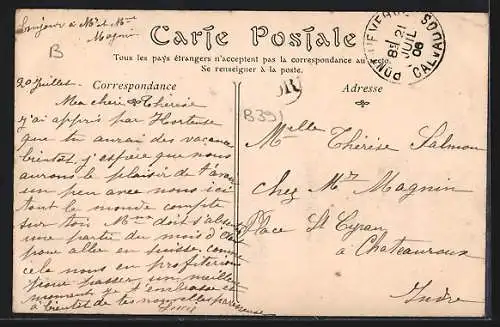 Bonjour à Mr et Mme
Magnin
B
Carte Postale
Tous les pays étrangers n'acceptent pas la correspondance au recto.
Se renseigner à la poste.
PONT-L'EVEQUE
8E 21
JUIL
06
CALVADOS
Correspondance
Adresse
OR
B39
20 Juillet
Ma chère Thérèse
j'ai appris par Hortense
que tu aurais des vacances
bientôt, j'espère que nous
aurons le plaisir de t'avoir
un peu avec nous ici
tout le monde compte
sur toi Mme doit s'absenter
une partie du mois d'Août
pour aller en Suisse comme
cela nous en profiterions
pour passer un meilleur
moment je t'embrasse et
à bientôt de tes nouvelles
Melle Thérèse Salmon
chez Mr Magnin
Place St Cyran
à Chateauroux
Indre